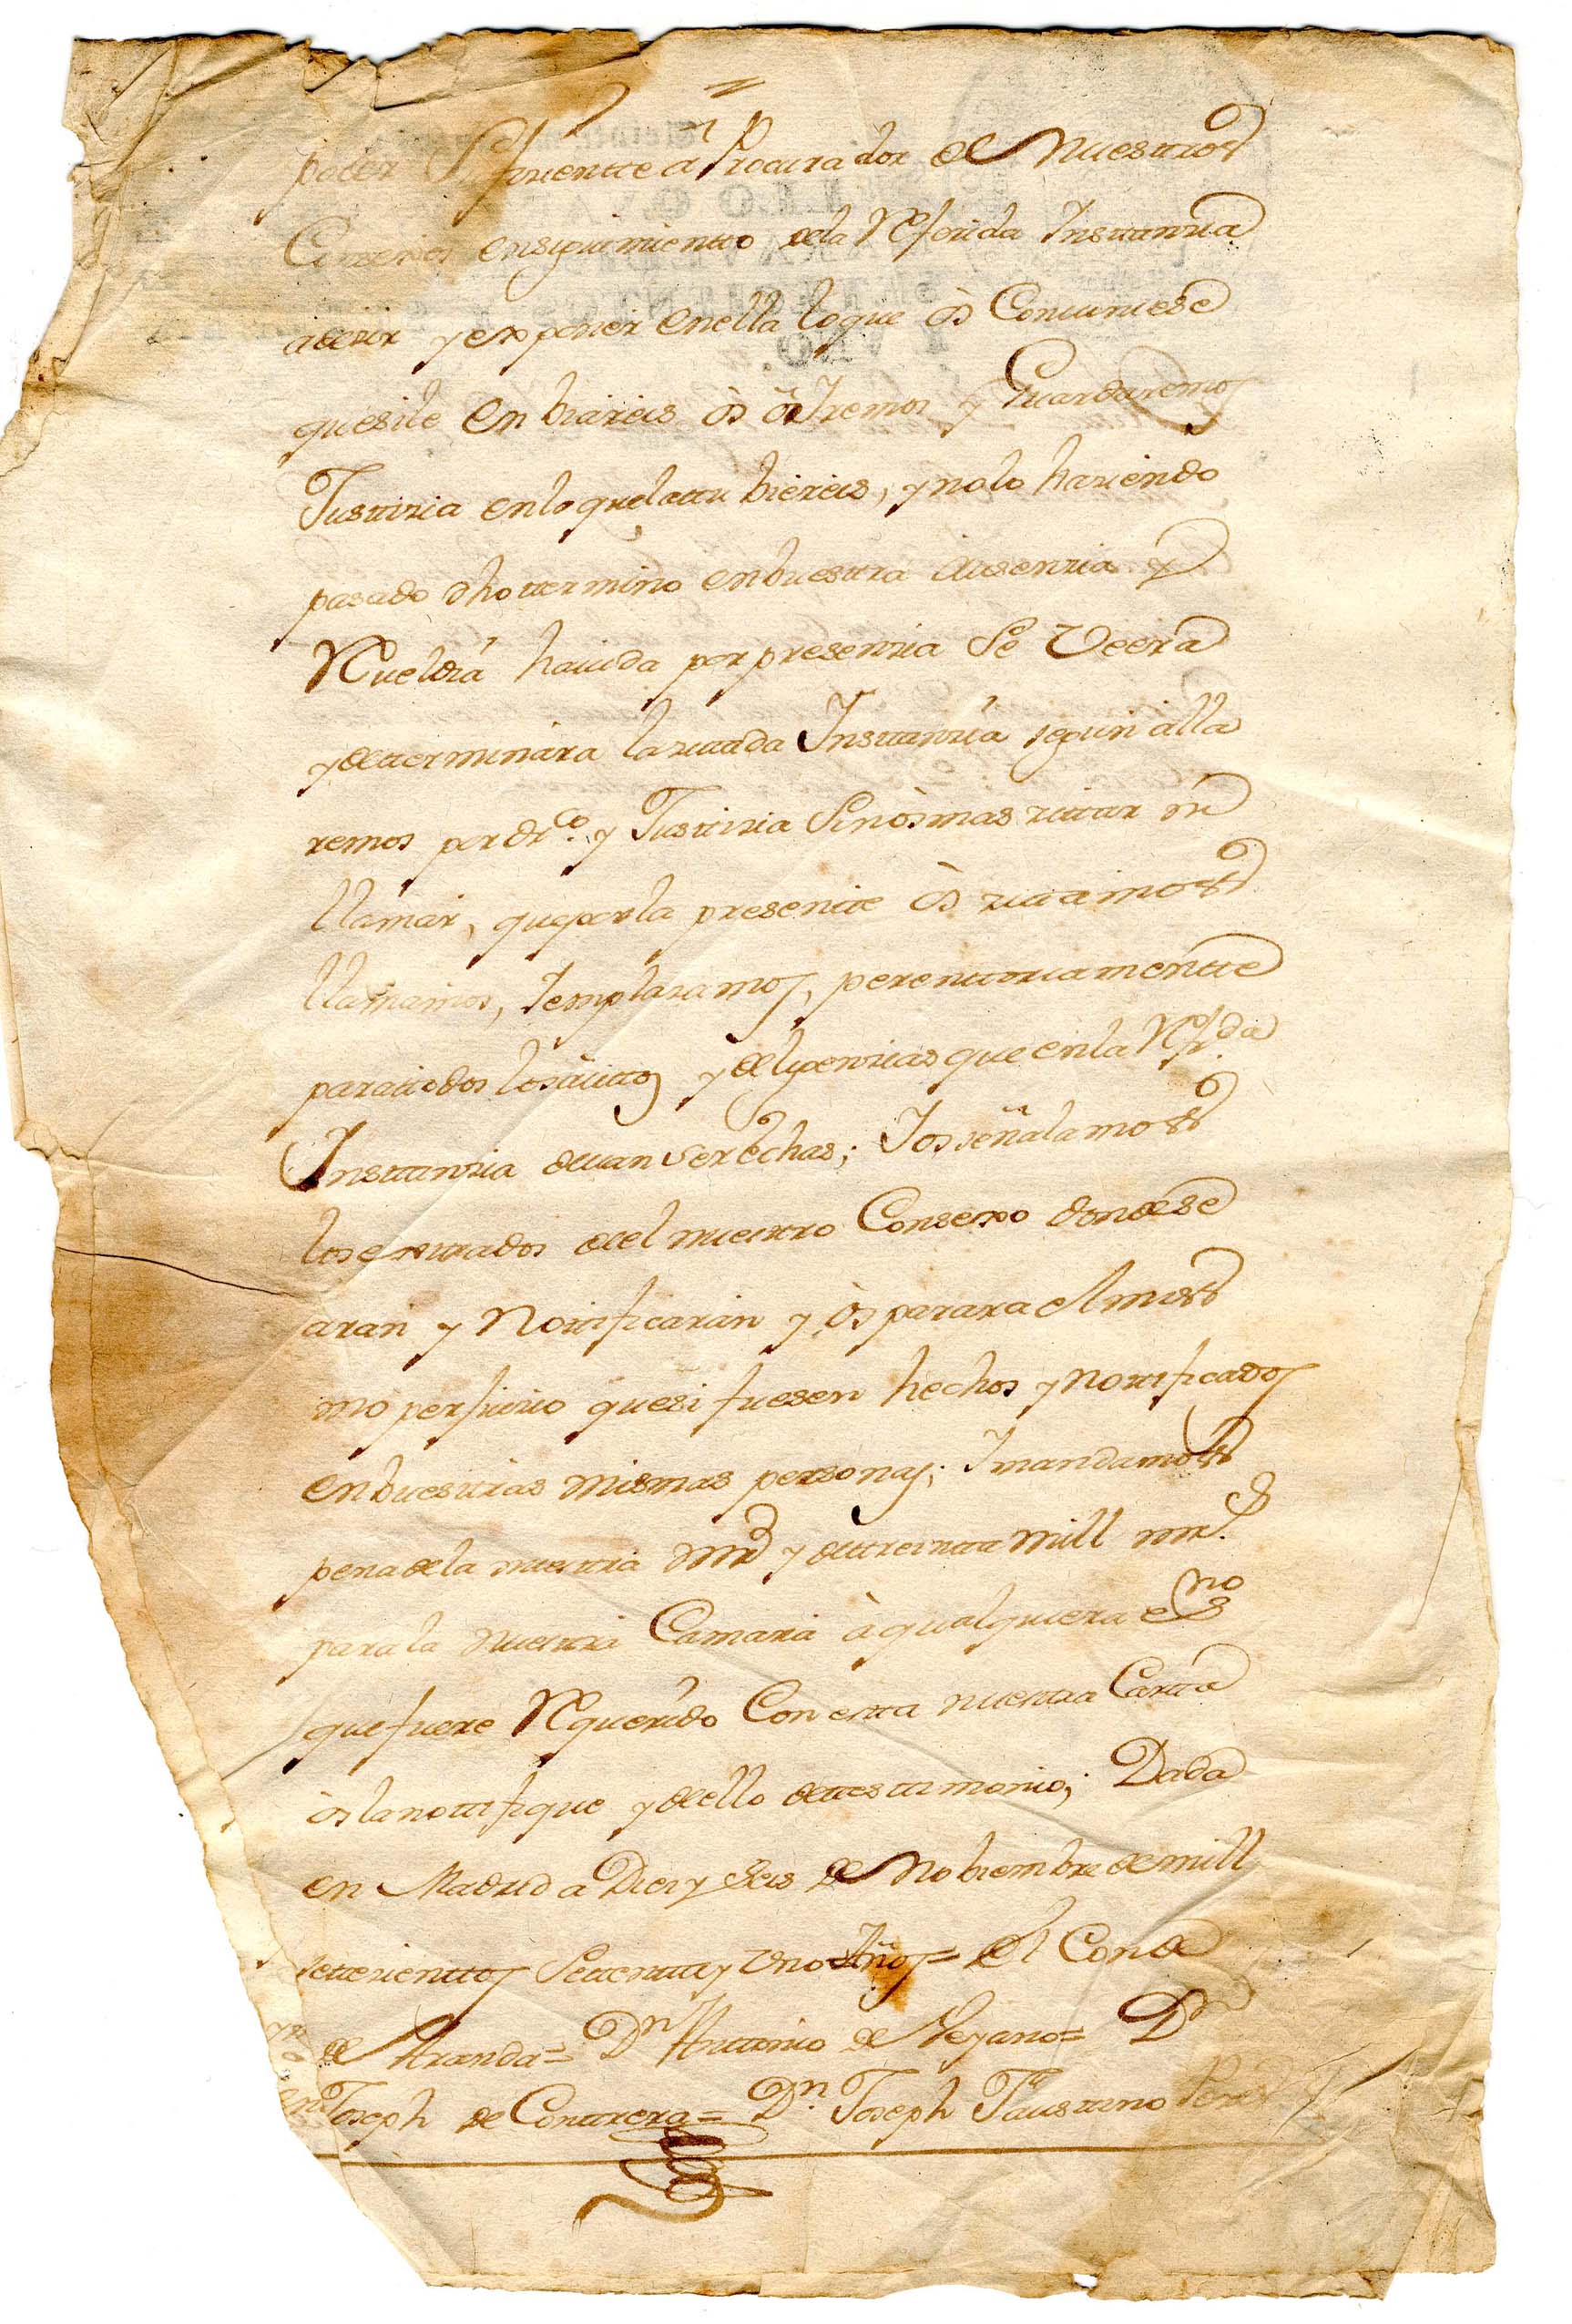 poder Sufizientte à Procurador de Nuestros
Consexos en siguimientto dela Referida Insttanzia
adezir y exponer en ella lo que ôs Combiniese
que si le embiareis ôs ôiremos y Guardaremos
Justtizia en lo que la ttubiereis, y no lo haziendo
pasado dho ttermino en buestra Ausenzia y
Rueldia hauida por presenzia Se Veera
y detterminara la zittada Insttanzia segun alla
remos por dr.co y Justtizia Sin ôs mas zittar ni
llamar, que por la presentte ôs zittamos
llamamos, y emplazamos, perenttoriamentte
para ttodos los autos y deligenzias que en la Refr.da
Insttanzia deuan ser echas; Y os señalamos
los extrados de el nuestro Consexo donde se
aran y Nottificaran y ôs parara el mis
mo perjuizio que si fuesen hechos y nottificados
en buestras mismas personas; Y mandamos
pena de la nuestra mrd y de ttreintta mill mrs.
para la nuestra Camara à qualquiera esno
que fuere Requerido Con esta nuestra Cartta
ôs la nottifique y de ello de ttesttimonio; Dada
en Madrid a Diez y Seis de Nobiembre de mill
settezienttos Settentta y Uno Años = El Conde
de Aranda = Dn Anttonio de Veyano = Dn
Joseph de Contrera = Dn. Joseph Faustino Perez